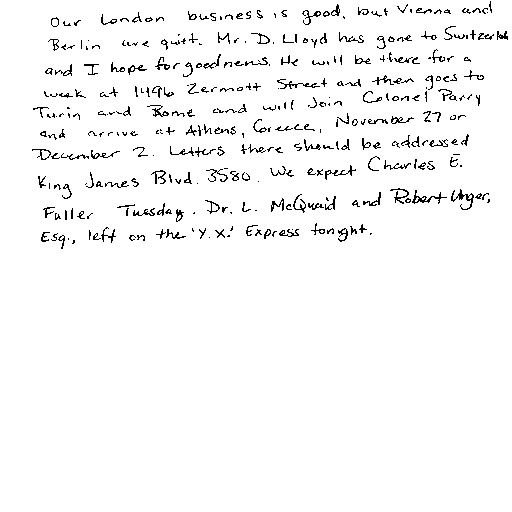 Our London business is good, but Vienna and
Berlin are quitt. Mr. D. Lloyd has gone to Switzerlnd
and I hope for good news. He will be there for a
week at 1496 Zermott Street and then goes to
Turin and Rome and will Join Colonel Parry
and arrive at Athens, Greece, November 27 or
December 2. Letters there should be addressed
King James Blvd. 3580. We expect Charles E.
Fuller Tuesday. Dr. L. McQuaid and Robert Unger,
Esq., left on the 'Y.X.' Express tonight.